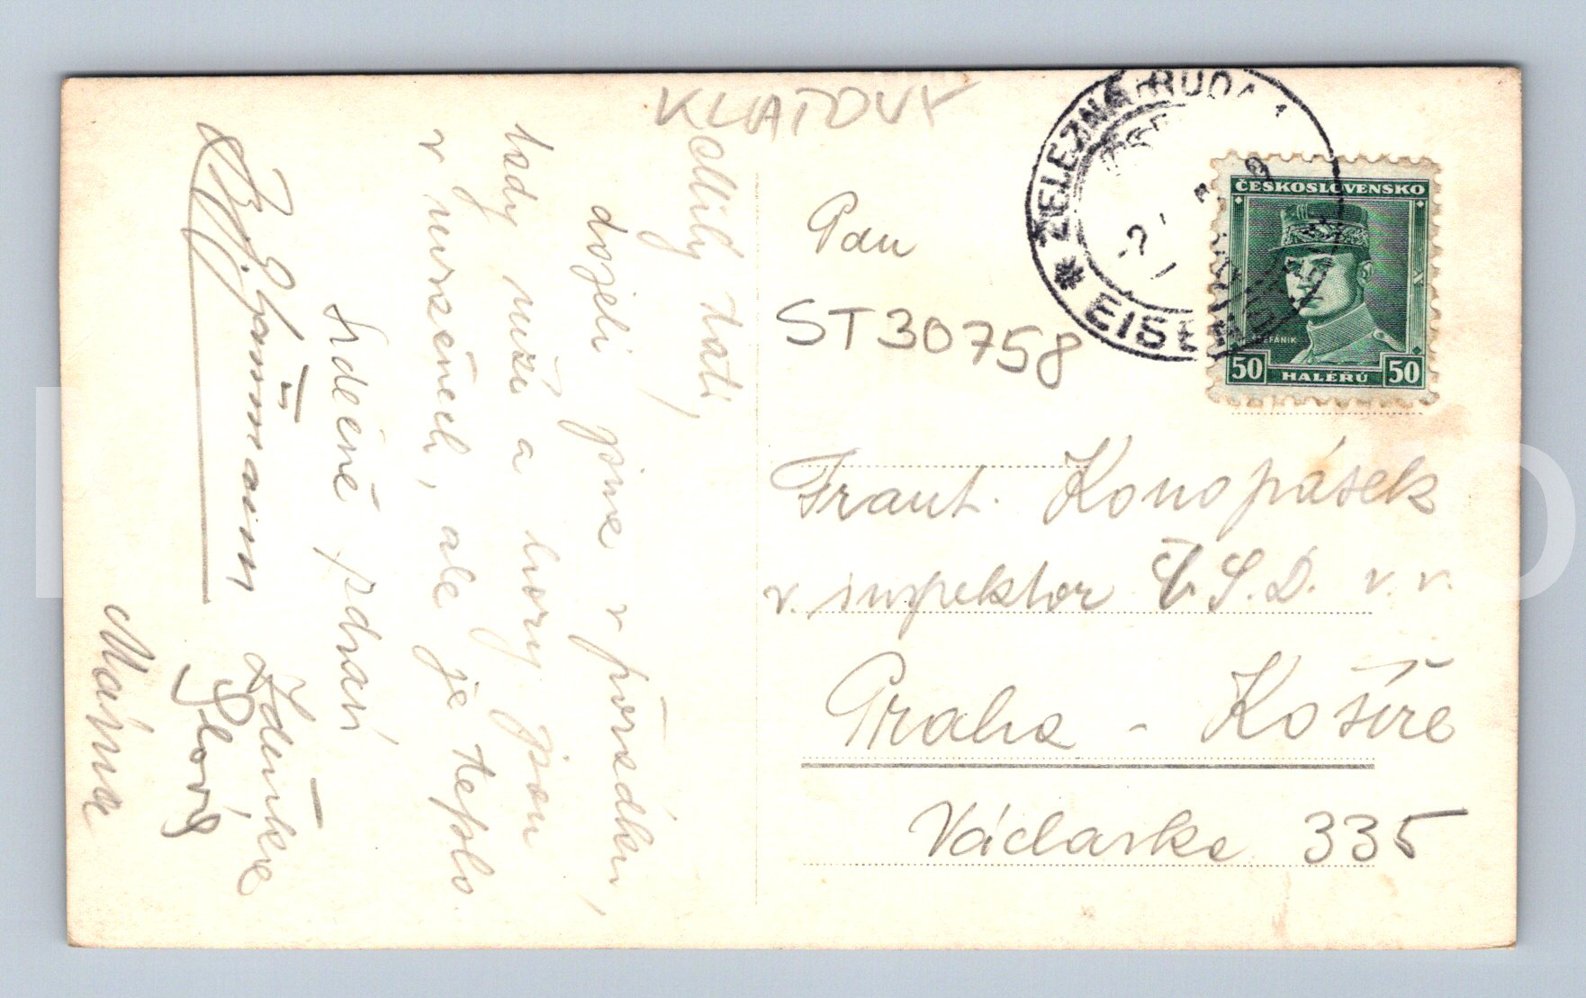 KLATOVY
Milý tati,
dojeli jsme v pořádku,
tady mrzí a hory jsou
v mracích, ale je teplo
Srdečně zdraví
Zdeňka
Mařina
ŽELEZNÁ RUDA 1
EISEN
ČESKOSLOVENSKO
ŠTEFÁNIK
50 HALÉŘŮ 50
Pan
ST30758
Frant. Konopásek
v. inspektor Č.S.D. v. v.
Praha - Košíře
Václavka 335